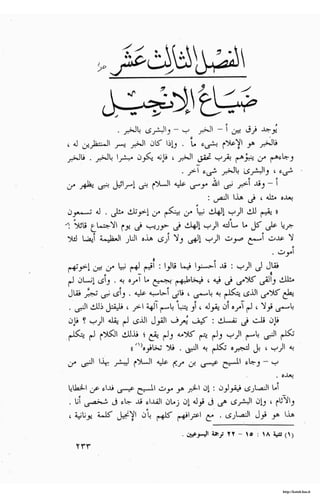 الفصل الثالث عشر
ضياع الإنجيل
يوجد فرق بين أ – الخبر ب – والبشرى بالخبر .
فالخبر هو الإعلام بشيء ما . وإذا كان الخبر يسر المنتظرين له ،
وجاءهم من ينبؤهم بقرب تحقق الخبر ، فإنه يكون مبشرا بالخبر . فالخبر
شيء ، والبشرى بالخبر شيء آخر .
أ – وقد أخبر نبى الله موسى عليه السلام بنى إسرائيل بنبى يظهر من
بعده مثله ، فى هذا النص :
« يقيم لك الرب إلهك نبيا من بينكم من إخوتك مثلى . له تسمعون
جريا على كل ما سألته الرب إلهك فى حوريب فى يوم الاجتماع قائلا
لا عدت أسمع صوت الرب إلهى ولا أرى هذه النار العظيمة أيضا لئلا
أموت .
فقال لى الرب : قد أحسنوا فيما قالوا : أقيم لهم نبيا من بين إخوتهم
مثلك وألقى كلامى فى فيه ، فيخاطبهم بجميع ما آمره به . وأى إنسان لم
يطع كلامى الذى يتكلم به باسمى ، فانى أحاسبه عليه . وأى نبى تجبر فقال
باسمى قولا ، لم آمره أن يقوله ، أو يتنبأ باسم آلهة اخر ، فليقتل ذلك النبى .
فإن قلت فى نفسك : كيف يُعرف القول الذى لم يقله الرب ؟ فإن
تكلم النبى باسم الرب ولم يتم كلامه ولم يقع ؛ فذلك الكلام لم يتكلم
به الرب ، بل لتجبره تكلم به النبى . فلا تخافوه(١) »
ب – وجاء المسيح عيسى بن مريم عليه السلام ليبشر بهذا النبى من
بعده .
أما النصارى فيقولون : إن الخبر هو موت المسيح عيسى فداء عن الخطايا
والآثام ، وإن البشرى هى فى قوله إن زمان الفداء قد جاء فى شخصى أنا .
هذا هو قول النصارى . مع اعترافهم كلهم بأن الإنجيل كلمة يونانية ،
(١) تثنية ١٨ : ١٥ – ٢٢ ترجمة اليسوعيين .
٢٣٣